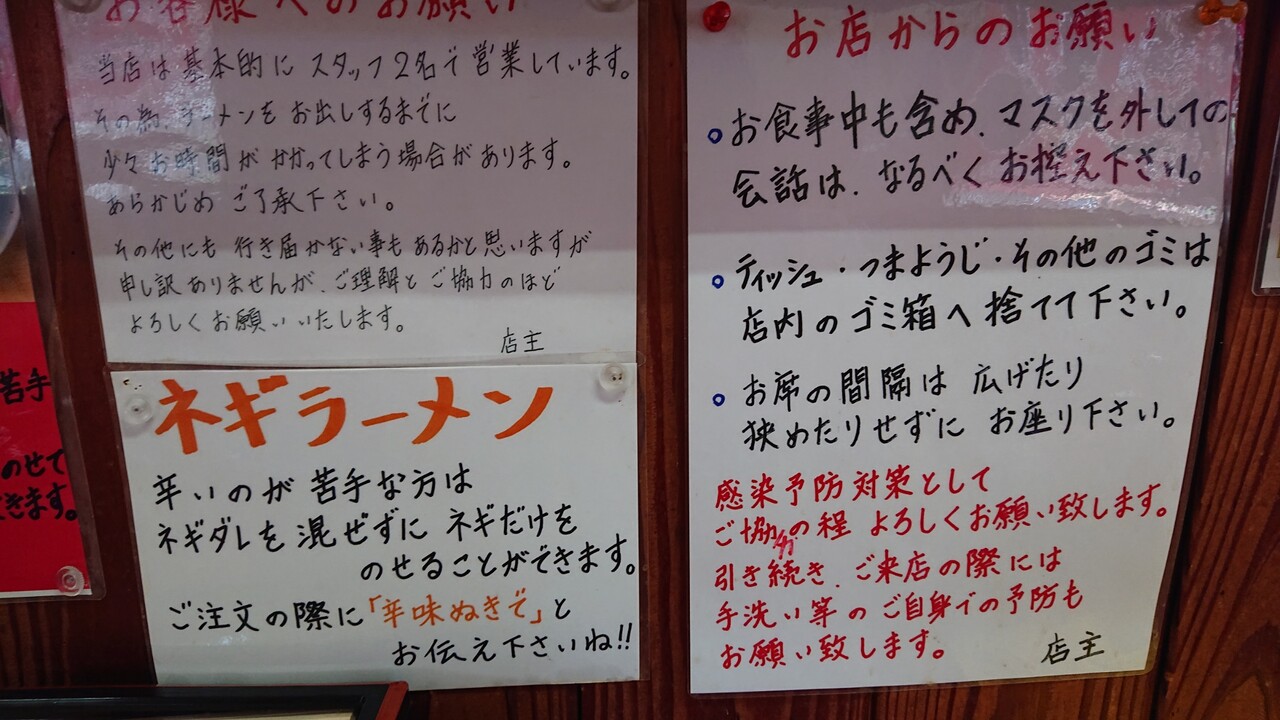 お客様へのお願い
当店は基本的にスタッフ2名で営業しています。
その為、ラーメンをお出しするまでに
少々お時間がかかってしまう場合があります。
あらかじめご了承下さい。
その他にも行き届かない事もあるかと思いますが
申し訳ありませんが、ご理解とご協力のほど
よろしくお願いいたします。
店主
ネギラーメン
辛いのが苦手な方は
ネギダレを混ぜずにネギだけを
のせることができます。
ご注文の際に「辛味ぬきで」と
お伝え下さいね!!
お店からのお願い
○お食事中も含め、マスクを外しての
会話は、なるべくお控え下さい。
○ティッシュ・つまようじ・その他のゴミは
店内のゴミ箱へ捨てて下さい。
○お席の間隔は広げたり
狭めたりせずにお座り下さい。
感染予防対策として
ご協力の程よろしくお願い致します。
引き続き、ご来店の際には
手洗い等のご自身での予防も
お願い致します。
店主
苦手
のせて
きます。